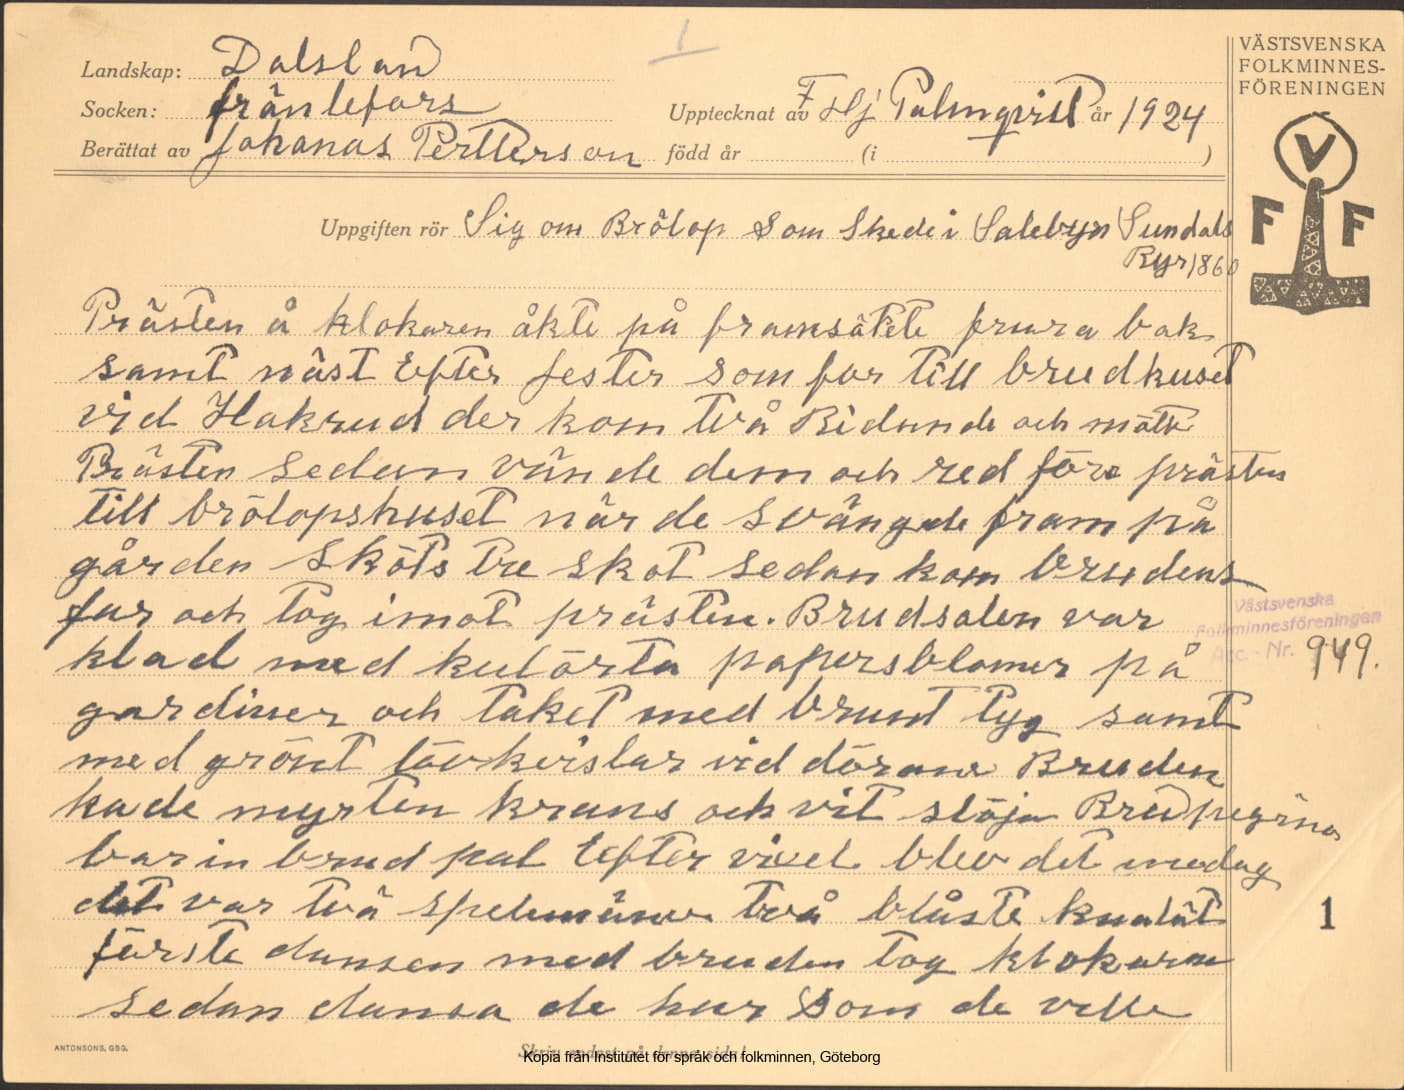 1
VÄSTSVENSKA
FOLKMINNES-
FÖRENINGEN
Landskap: Dalsland
Socken: fränlefors
Upptecknat av F Hj Palmqvist år 1924
Berättat av Johanas Pertterson född år (i )
Uppgiften rör Sig om Brölop Som Skede i Salebyn Sundals
Ryr 1860
V
F F
Prästen å klokaren åkte på framsätete frura bak
samt näst Efter jester som for till brudhuset
vid Hakrud der kom två Ridande och mötte
Prästen sedan vände dem och red före prästen
till brölopshuset när de svängde fram på
gården sköts tre skot sedan kom brudens
far och tog imot prästen. Brudsalen var
kläd med kulörta papersblomer på
gardiner och taket med brunt tyg samt
med grönt lövkvistar vid dörane Bruden
hade myrten krans och vit slöja Brudpigorna
bar in brud pal Efter vixel blev det medag
det var två spelemänn två blåste knalät
förste dansen med bruden tog klokaren
sedan dansa de hur som de ville
Västsvenska
Folkminnesföreningen
Acc. Nr. 949.
1
ANTONSONS, GBG.
Skriv endast på denna sida!
Kopia från Institutet för språk och folkminnen, Göteborg